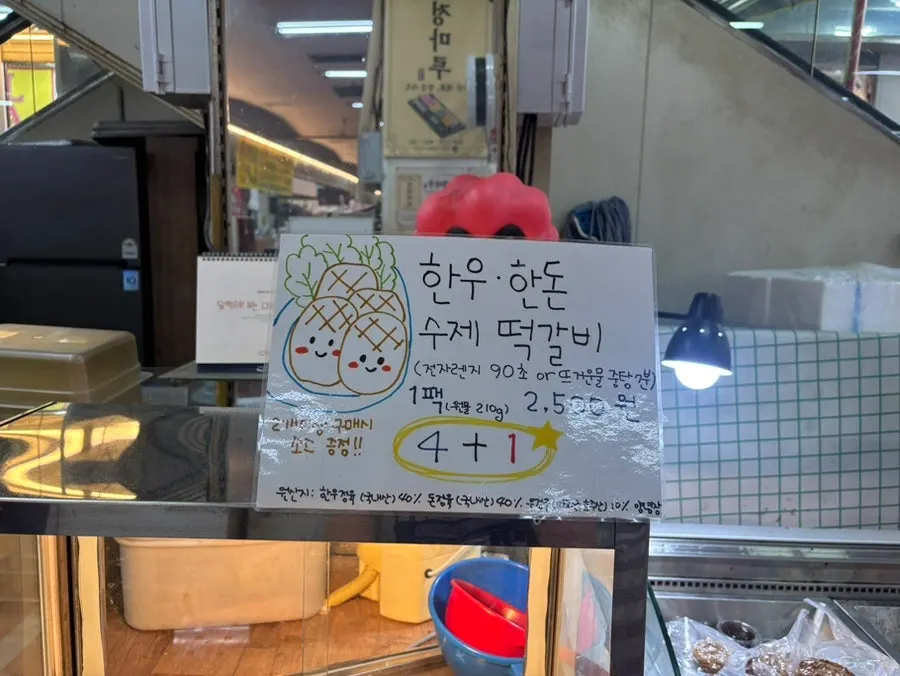 청마루
한우·한돈
수제 떡갈비
(전자렌지 90초 or 뜨거운물 중탕 2분)
1팩 (원물 210g) 2,500원
구매시
소스 증정!!
4+1
원산지: 한우정육(국내산) 40% 돈정육(국내산) 40% 10%